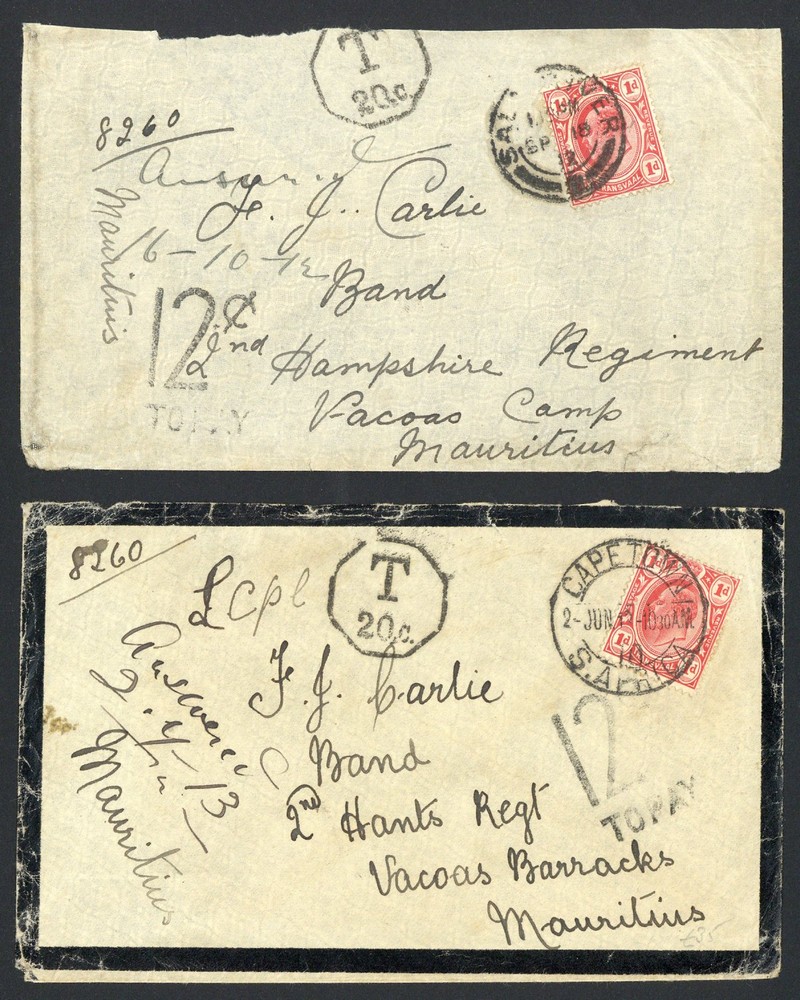 T
20c.
1d 1d
SALT RIVER
SP 18
12
1d
TRANSVAAL
8260
Mauritius
F. J. Carlie
16-10-12
Band
12c
2nd Hampshire Regiment
TO PAY
Vacoas Camp
Mauritius
8260
T
20c.
CAPE TOWN
2-JUN 13-1030AM
S. AFRICA
1d 1d
1d
L cpl
Answered
F. J. Carlie
Band
2nd Hants Regt
12
TO PAY
Vacoas Barracks
Mauritius
Mauritius
£35